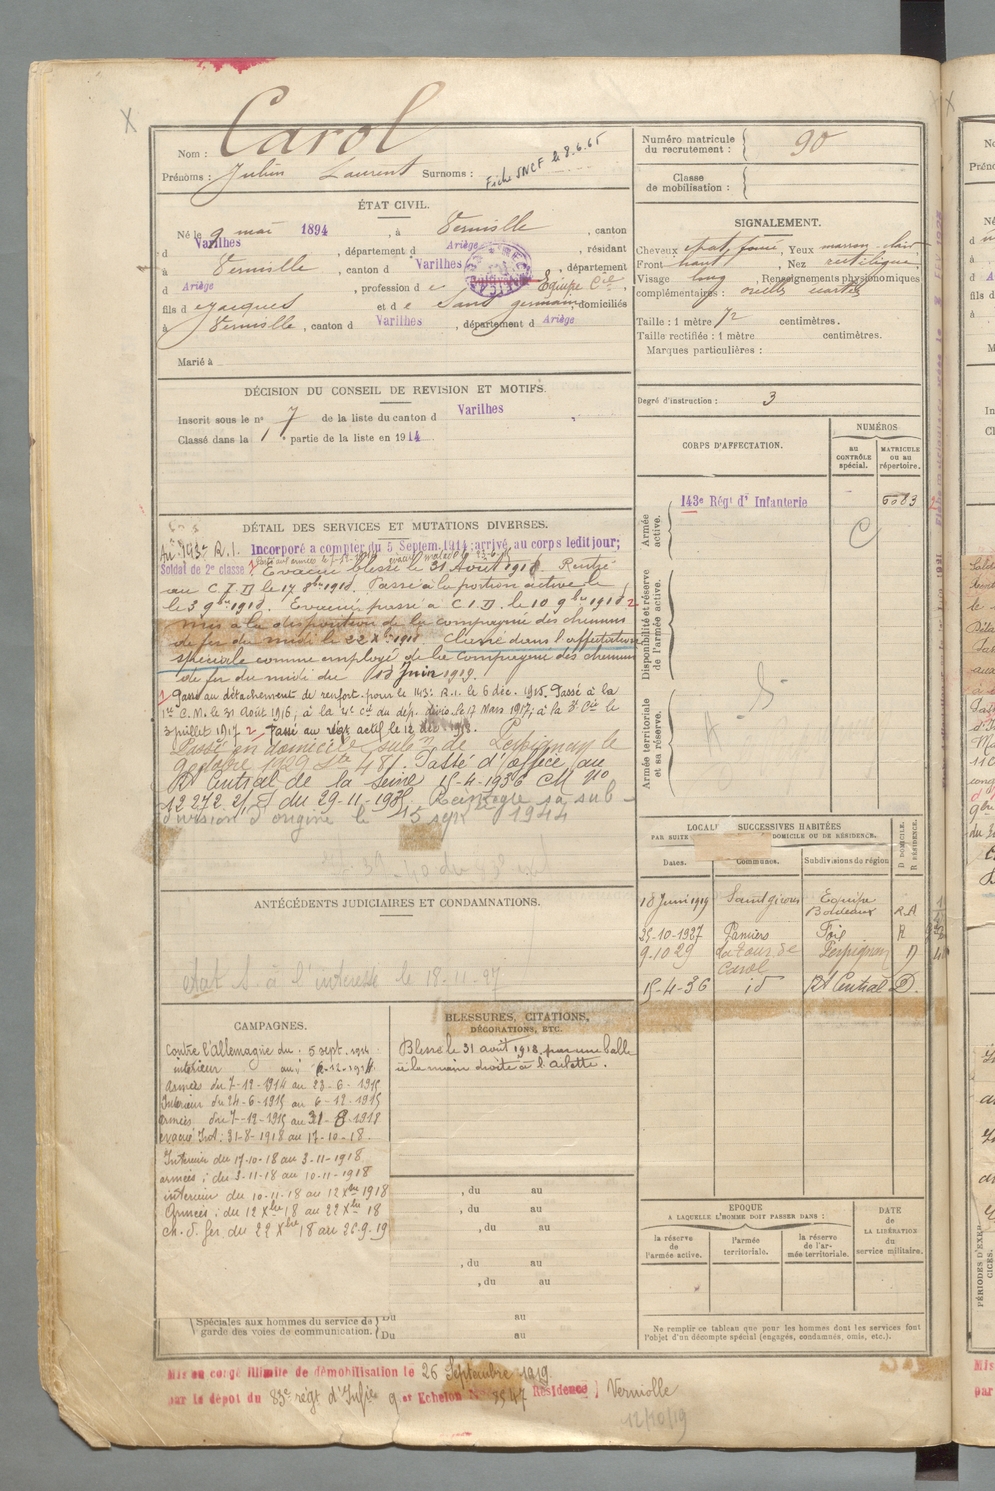 Nom : Carol
Prénoms : Julien Laurent Surnoms : Fiche SNCF le 8.6.65
Numéro matricule du recrutement : 90
Classe de mobilisation :
ÉTAT CIVIL.
Né le 9 mai 1894, à Verniolle, canton
d Varilhes, département d Ariège, résidant
à Verniolle, canton d Varilhes, département
d Ariège, profession d Equipe
fils d e Jacques et d e Sans germaine domiciliés
à Verniolle, canton d Varilhes, département d Ariège
Marié à
SIGNALEMENT.
Cheveux chat. foncé, Yeux marron clair
Front haut, Nez rectiligne,
Visage long, Renseignements physionomiques
complémentaires : oreilles écartées
Taille : 1 mètre 72 centimètres.
Taille rectifiée : 1 mètre centimètres.
Marques particulières :
Degré d'instruction : 3
DÉCISION DU CONSEIL DE REVISION ET MOTIFS.
Inscrit sous le n° 7 de la liste du canton d Varilhes,
Classé dans la 1e partie de la liste en 1914
CORPS D'AFFECTATION.
NUMÉROS
AU CONTRÔLE spécial.
MATRICULE OU AU répertoire.
Armée active.
143e Régt d'Infanterie
C
6083
Disponibilité et réserve de l'armée active.
Armée territoriale et sa réserve.
DÉTAIL DES SERVICES ET MUTATIONS DIVERSES.
Au 143e R.I. Incorporé à compter du 5 Septem. 1914; arrivé au corps ledit jour;
Soldat de 2e classe
Evacué blessé le 31 Août 1918. Rentré
au C.I.D le 17 8bre 1918. Passé à la portion active le
le 3 9bre 1918. Evacué, passé à C.I.D. le 10 9bre 1918 2
mis à la disposition de la compagnie des chemins
de fer du midi le 22 Xbre 1918 Classé dans l'affectation
spéciale comme employé de la Compagnie des chemins
de fer du midi du 18 Juin 1919.
1 Passé au détachement de renfort pour le 143e R.I. le 6 déc. 1915. Passé à la
1re C.M. le 31 Août 1916; à la 4e Cie du dép. divis. le 17 Mars 1917; à la 3e Cie le
3 juillet 1917 2 Passé au régt actif le 12 déc 1918.
Passé en domicile subon de Perpignan le
9 octobre 1929 Ste 481. Passé d'office au
Rt Central de la Seine 15-4-1936 CM No
12272 2/ du 29-11-1935, Réintègre sa sub-
division d'origine le 15 sept 1944
LOCALITÉS SUCCESSIVES HABITÉES
PAR SUITE DOMICILE OU DE RÉSIDENCE.
Dates. Communes. Subdivisions de région
D DOMICILE. R RÉSIDENCE.
18 Juin 1919 Saint girons Equipe Bordeaux R.A
25-10-1927 Pamiers Foix R
9-10 29 La tour de Carol Perpignan D
15-4-36 id Rt Central D.
ANTÉCÉDENTS JUDICIAIRES ET CONDAMNATIONS.
état S à l'intéressé le 18-11-47
CAMPAGNES.
Contre l'Allemagne du : 5 sept. 1914
intérieur au : 6-12-1914
Armée du 7-12-1914 au 23-6-1915
Intérieur du 24-6-1915 au 6-12-1915
Armées du 7-12-1915 au 31-8-1918
évacué Int : 31-8-1918 au 17-10-18
Intérieur du 17-10-18 au 3-11-1918
armées : du 3-11-18 au 10-11-1918
intérieur du 10-11-18 au 12 Xbre 1918
Armées : du 12 Xbre 18 au 22 Xbre 18
ch. d. fer du 22 Xbre 18 au 26-9-19
BLESSURES, CITATIONS, DÉCORATIONS, ETC.
Blessé le 31 août 1918, par une balle
à la main droite à l'Ailette.
, du au
, du au
, du au
, du au
, du au
Spéciales aux hommes du service de garde des voies de communication.
Du au
Du au
EPOQUE
A LAQUELLE L'HOMME DOIT PASSER DANS :
la réserve de l'armée active.
l'armée territoriale.
la réserve de l'armée territoriale.
DATE de LA LIBÉRATION du service militaire.
Ne remplir ce tableau que pour les hommes dont les services font
l'objet d'un décompte spécial (engagés, condamnés, omis, etc.).
Mis en congé illimité de démobilisation le 26 Septembre 1919.
par le dépot du 83e régt d'Infie 9e Echelon No 3547 Résidence] Verniolle
12/10/19